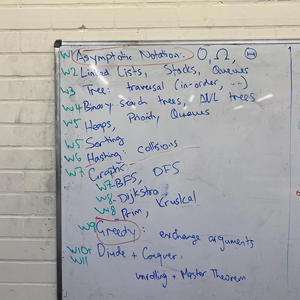 W1 Asymptotic Notation: O, Ω, Θ
W2 Linked Lists, Stacks, Queues
W3 Tree: traversal (in-order, ...)
W4 Binary search trees, AVL trees
W5 Heaps, Priority Queues
W5 Sorting
W6 Hashing: collisions
W7 Graphs:
W7 BFS, DFS
W8 Dijkstra
W8 Prim, Kruskal
W9 Greedy: exchange arguments
W10+ Divide + Conquer
W11 unrolling + Master Theorem